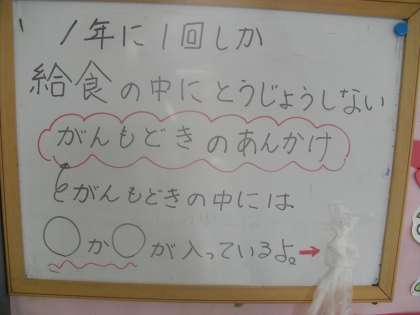 1年に1回しか
給食の中にとうじょうしない
がんもどきのあんかけ
がんもどきの中には
○か○が入っているよ。→